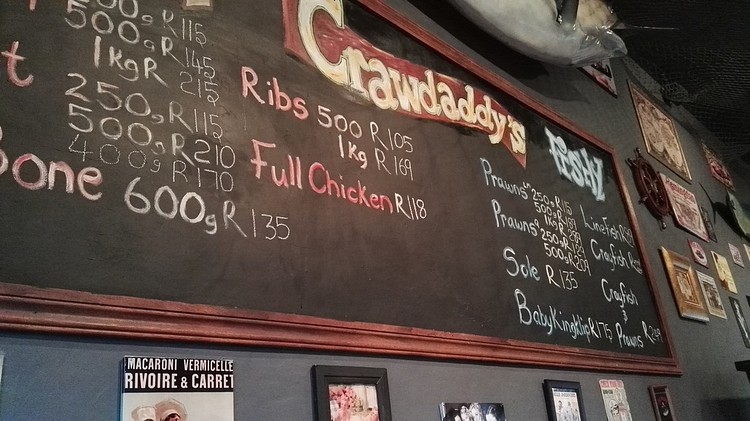 500g R115
500g R145
1kg R 215
t
250g R115
500g R210
400g R170
Bone 600g R135
Crawdaddy's
Ribs 500 R105
1kg R169
Full Chicken R118
Fishy
Prawns
250g R115
500g
1kg
Prawns
250g
500g
Sole R135
Baby Kingklip R175
Linefish
Crayfish
Crayfish
&
Prawns
MACARONI VERMICELLE
RIVOIRE & CARRET